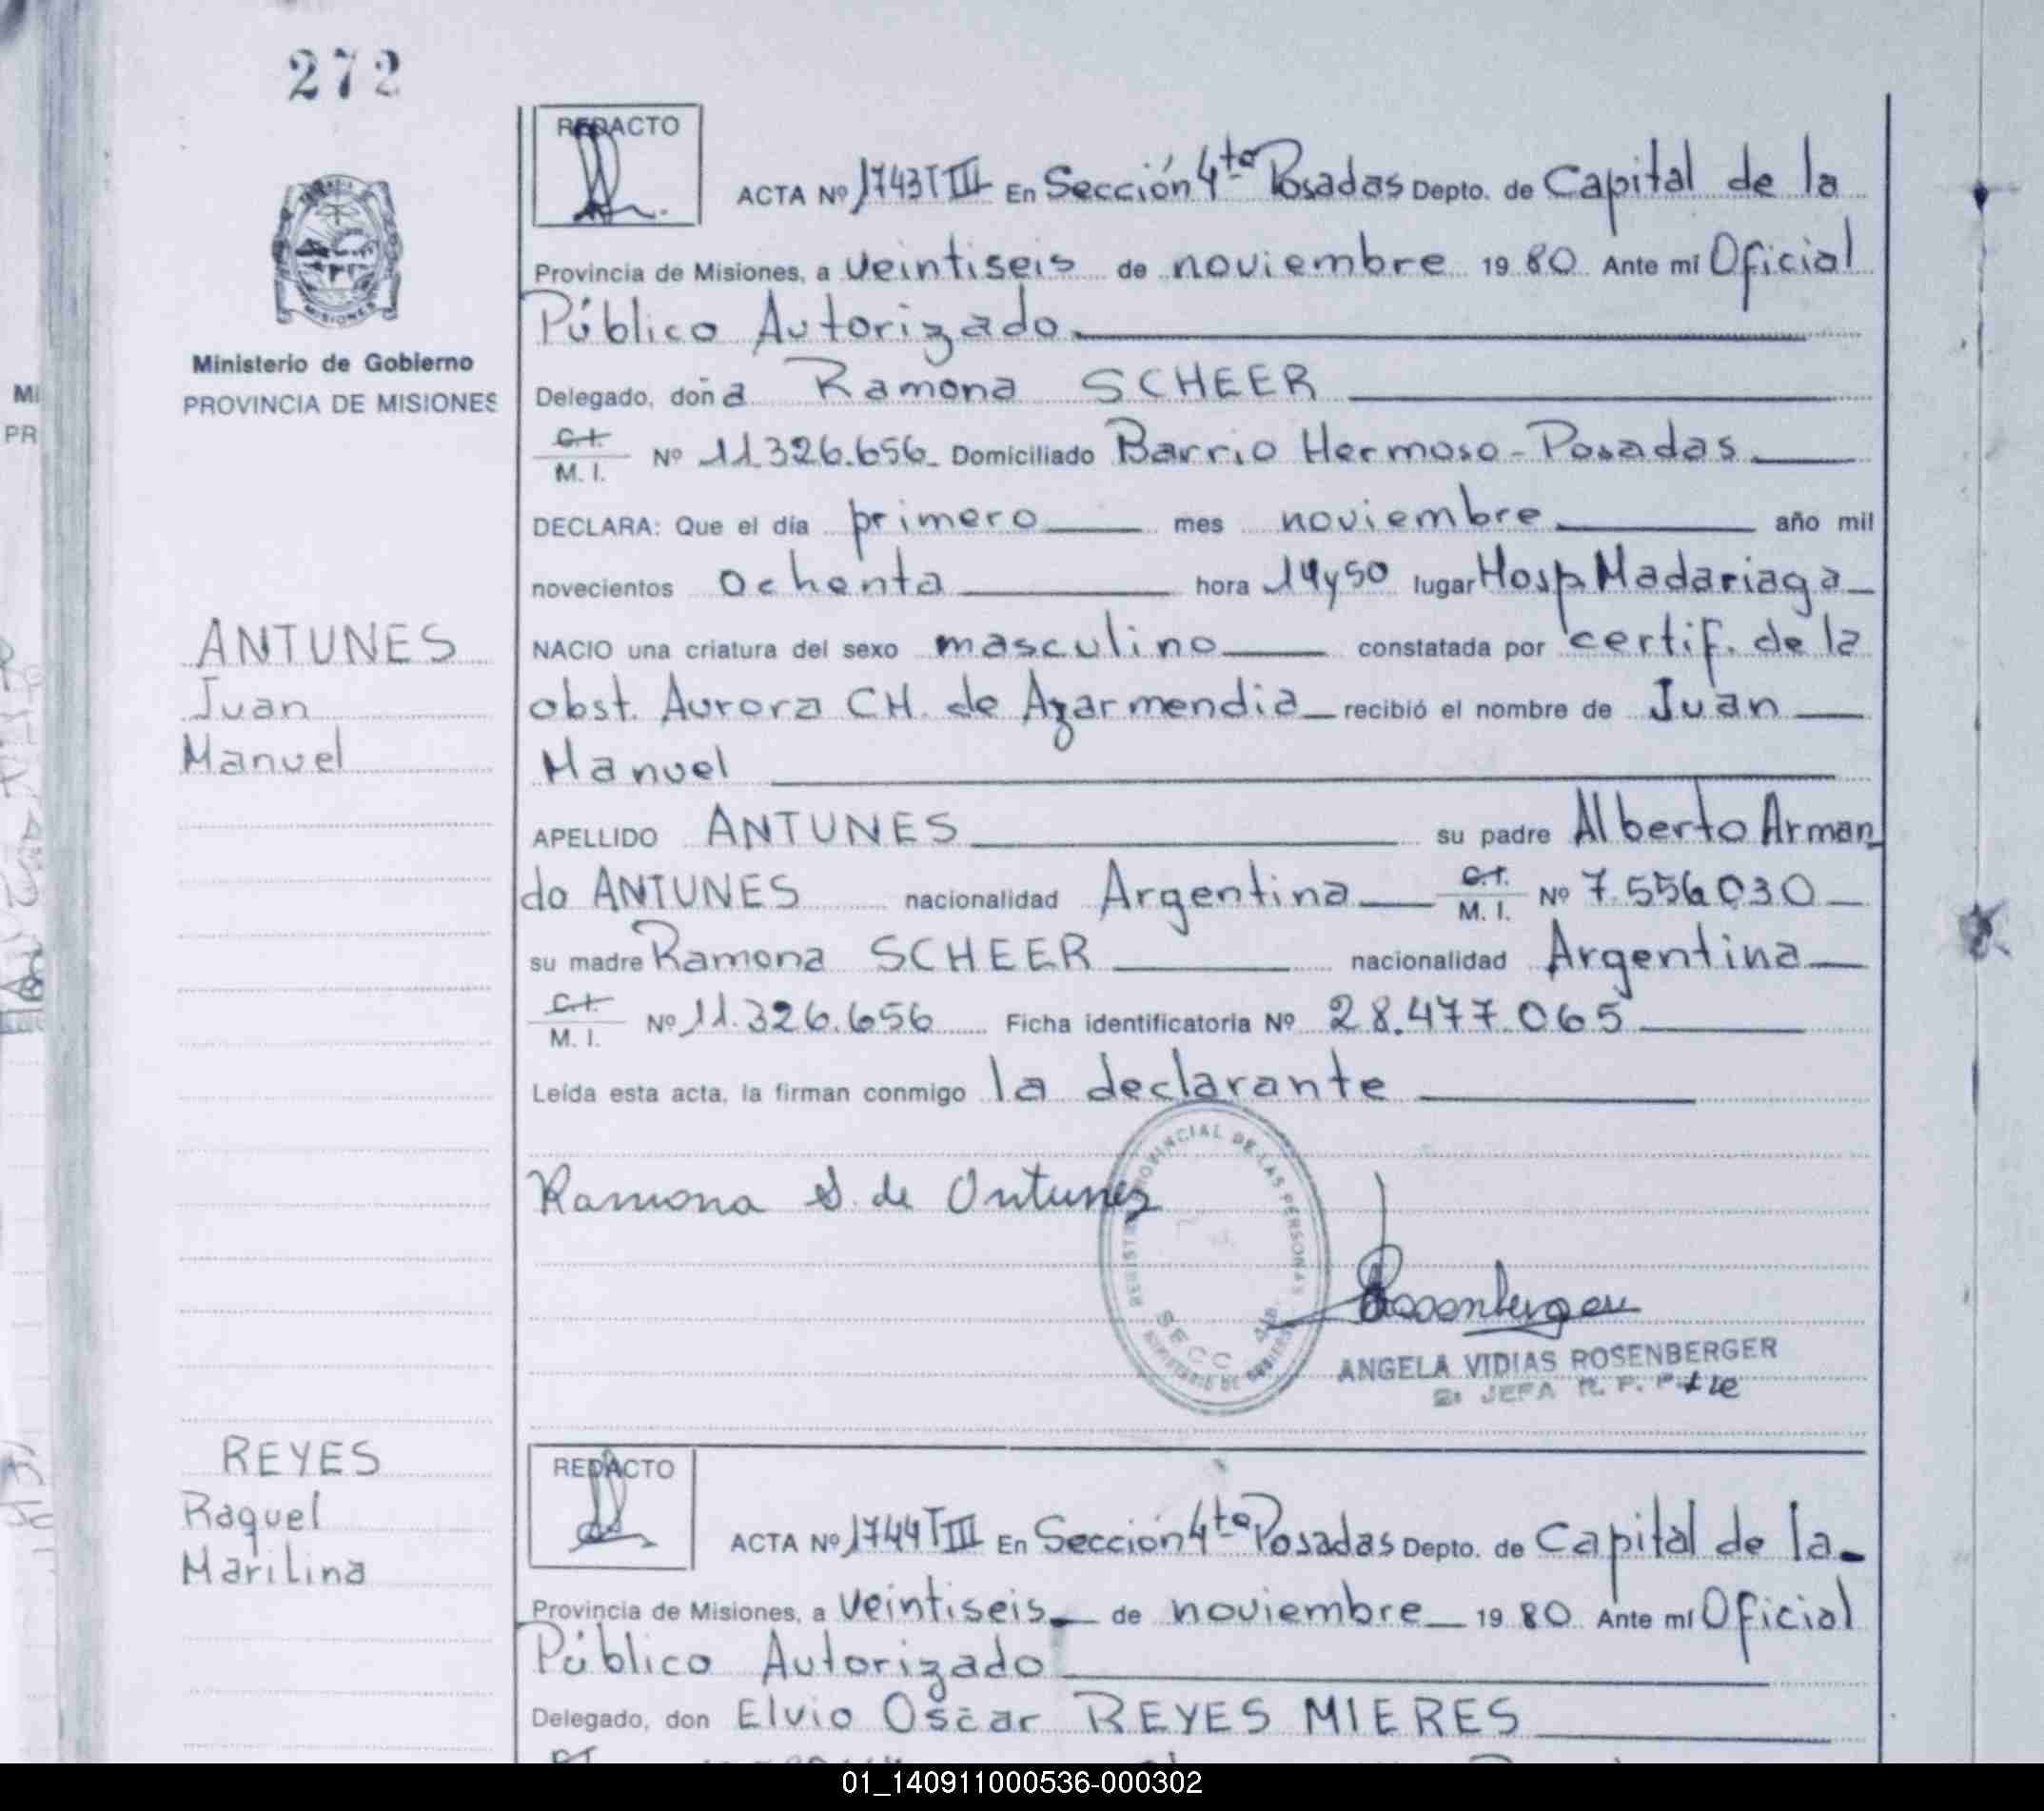 272
REDACTO
ACTA Nº 1743 T III En Sección 4ta Posadas Depto. de Capital de la
Provincia de Misiones, a veintiseis de noviembre 19 80 Ante mí Oficial
Público Autorizado
Ministerio de Gobierno
PROVINCIA DE MISIONES
Delegado, doña Ramona SCHEER
C.I. M. I. Nº 11.326.656 Domiciliado Barrio Hermoso - Posadas
DECLARA: Que el día primero mes noviembre año mil
novecientos ochenta hora 14 y 50 lugar Hosp. Madariaga
ANTUNES
Juan
Manuel
NACIO una criatura del sexo masculino constatada por certif. de la
obst. Aurora CH. de Azarmendia recibió el nombre de Juan
Manuel
APELLIDO ANTUNES su padre Alberto Arman
do ANTUNES nacionalidad Argentina C.I. M. I. Nº 7.556.030
su madre Ramona SCHEER nacionalidad Argentina
C.I. M. I. Nº 11.326.656 Ficha identificatoria Nº 28.477.065
Leída esta acta, la firman conmigo la declarante
Ramona S. de Antunes
REGISTRO PROVINCIAL DE LAS PERSONAS
SECC 4ta.
MINISTERIO DE GOBIERNO
Rosenberger
ANGELA VIDIAS ROSENBERGER
JEFA R. P.
REYES
Raquel
Marilina
REDACTO
ACTA Nº 1744 T III En Sección 4ta Posadas Depto. de Capital de la
Provincia de Misiones, a veintiseis de noviembre 19 80 Ante mí Oficial
Público Autorizado
Delegado, don Elvio Oscar REYES MIERES
01_140911000536-000302